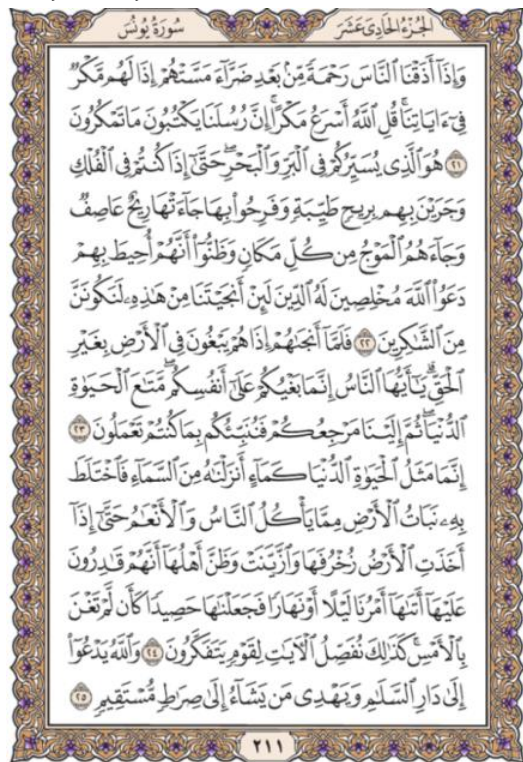 الجُزءُ الحَادِي عَشَرَ
سُورَةُ يُونُس
وَإِذَآ أَذَقْنَا ٱلنَّاسَ رَحْمَةً مِّنۢ بَعْدِ ضَرَّآءَ مَسَّتْهُمْ إِذَا لَهُم مَّكْرٌ
فِىٓ ءَايَاتِنَا ۚ قُلِ ٱللَّهُ أَسْرَعُ مَكْرًا ۚ إِنَّ رُسُلَنَا يَكْتُبُونَ مَا تَمْكُرُونَ
۝٢١ هُوَ ٱلَّذِى يُسَيِّرُكُمْ فِى ٱلْبَرِّ وَٱلْبَحْرِ ۖ حَتَّىٰٓ إِذَا كُنتُمْ فِى ٱلْفُلْكِ
وَجَرَيْنَ بِهِم بِرِيحٍ طَيِّبَةٍ وَفَرِحُوا۟ بِهَا جَآءَتْهَا رِيحٌ عَاصِفٌ
وَجَآءَهُمُ ٱلْمَوْجُ مِن كُلِّ مَكَانٍ وَظَنُّوٓا۟ أَنَّهُمْ أُحِيطَ بِهِمْ
دَعَوُا۟ ٱللَّهَ مُخْلِصِينَ لَهُ ٱلدِّينَ لَئِنْ أَنجَيْتَنَا مِنْ هَٰذِهِۦ لَنَكُونَنَّ
مِنَ ٱلشَّٰكِرِينَ ۝٢٢ فَلَمَّآ أَنجَىٰهُمْ إِذَا هُمْ يَبْغُونَ فِى ٱلْأَرْضِ بِغَيْرِ
ٱلْحَقِّ ۗ يَٰٓأَيُّهَا ٱلنَّاسُ إِنَّمَا بَغْيُكُمْ عَلَىٰٓ أَنفُسِكُم ۖ مَّتَٰعَ ٱلْحَيَوٰةِ
ٱلدُّنْيَا ۖ ثُمَّ إِلَيْنَا مَرْجِعُكُمْ فَنُنَبِّئُكُم بِمَا كُنتُمْ تَعْمَلُونَ ۝٢٣
إِنَّمَا مَثَلُ ٱلْحَيَوٰةِ ٱلدُّنْيَا كَمَآءٍ أَنزَلْنَٰهُ مِنَ ٱلسَّمَآءِ فَٱخْتَلَطَ
بِهِۦ نَبَاتُ ٱلْأَرْضِ مِمَّا يَأْكُلُ ٱلنَّاسُ وَٱلْأَنْعَٰمُ حَتَّىٰٓ إِذَآ
أَخَذَتِ ٱلْأَرْضُ زُخْرُفَهَا وَٱزَّيَّنَتْ وَظَنَّ أَهْلُهَآ أَنَّهُمْ قَٰدِرُونَ
عَلَيْهَآ أَتَىٰهَآ أَمْرُنَا لَيْلًا أَوْ نَهَارًا فَجَعَلْنَٰهَا حَصِيدًا كَأَن لَّمْ تَغْنَ
بِٱلْأَمْسِ ۚ كَذَٰلِكَ نُفَصِّلُ ٱلْءَايَٰتِ لِقَوْمٍ يَتَفَكَّرُونَ ۝٢٤ وَٱللَّهُ يَدْعُوٓا۟
إِلَىٰ دَارِ ٱلسَّلَٰمِ وَيَهْدِى مَن يَشَآءُ إِلَىٰ صِرَٰطٍ مُّسْتَقِيمٍ ۝٢٥
٢١١